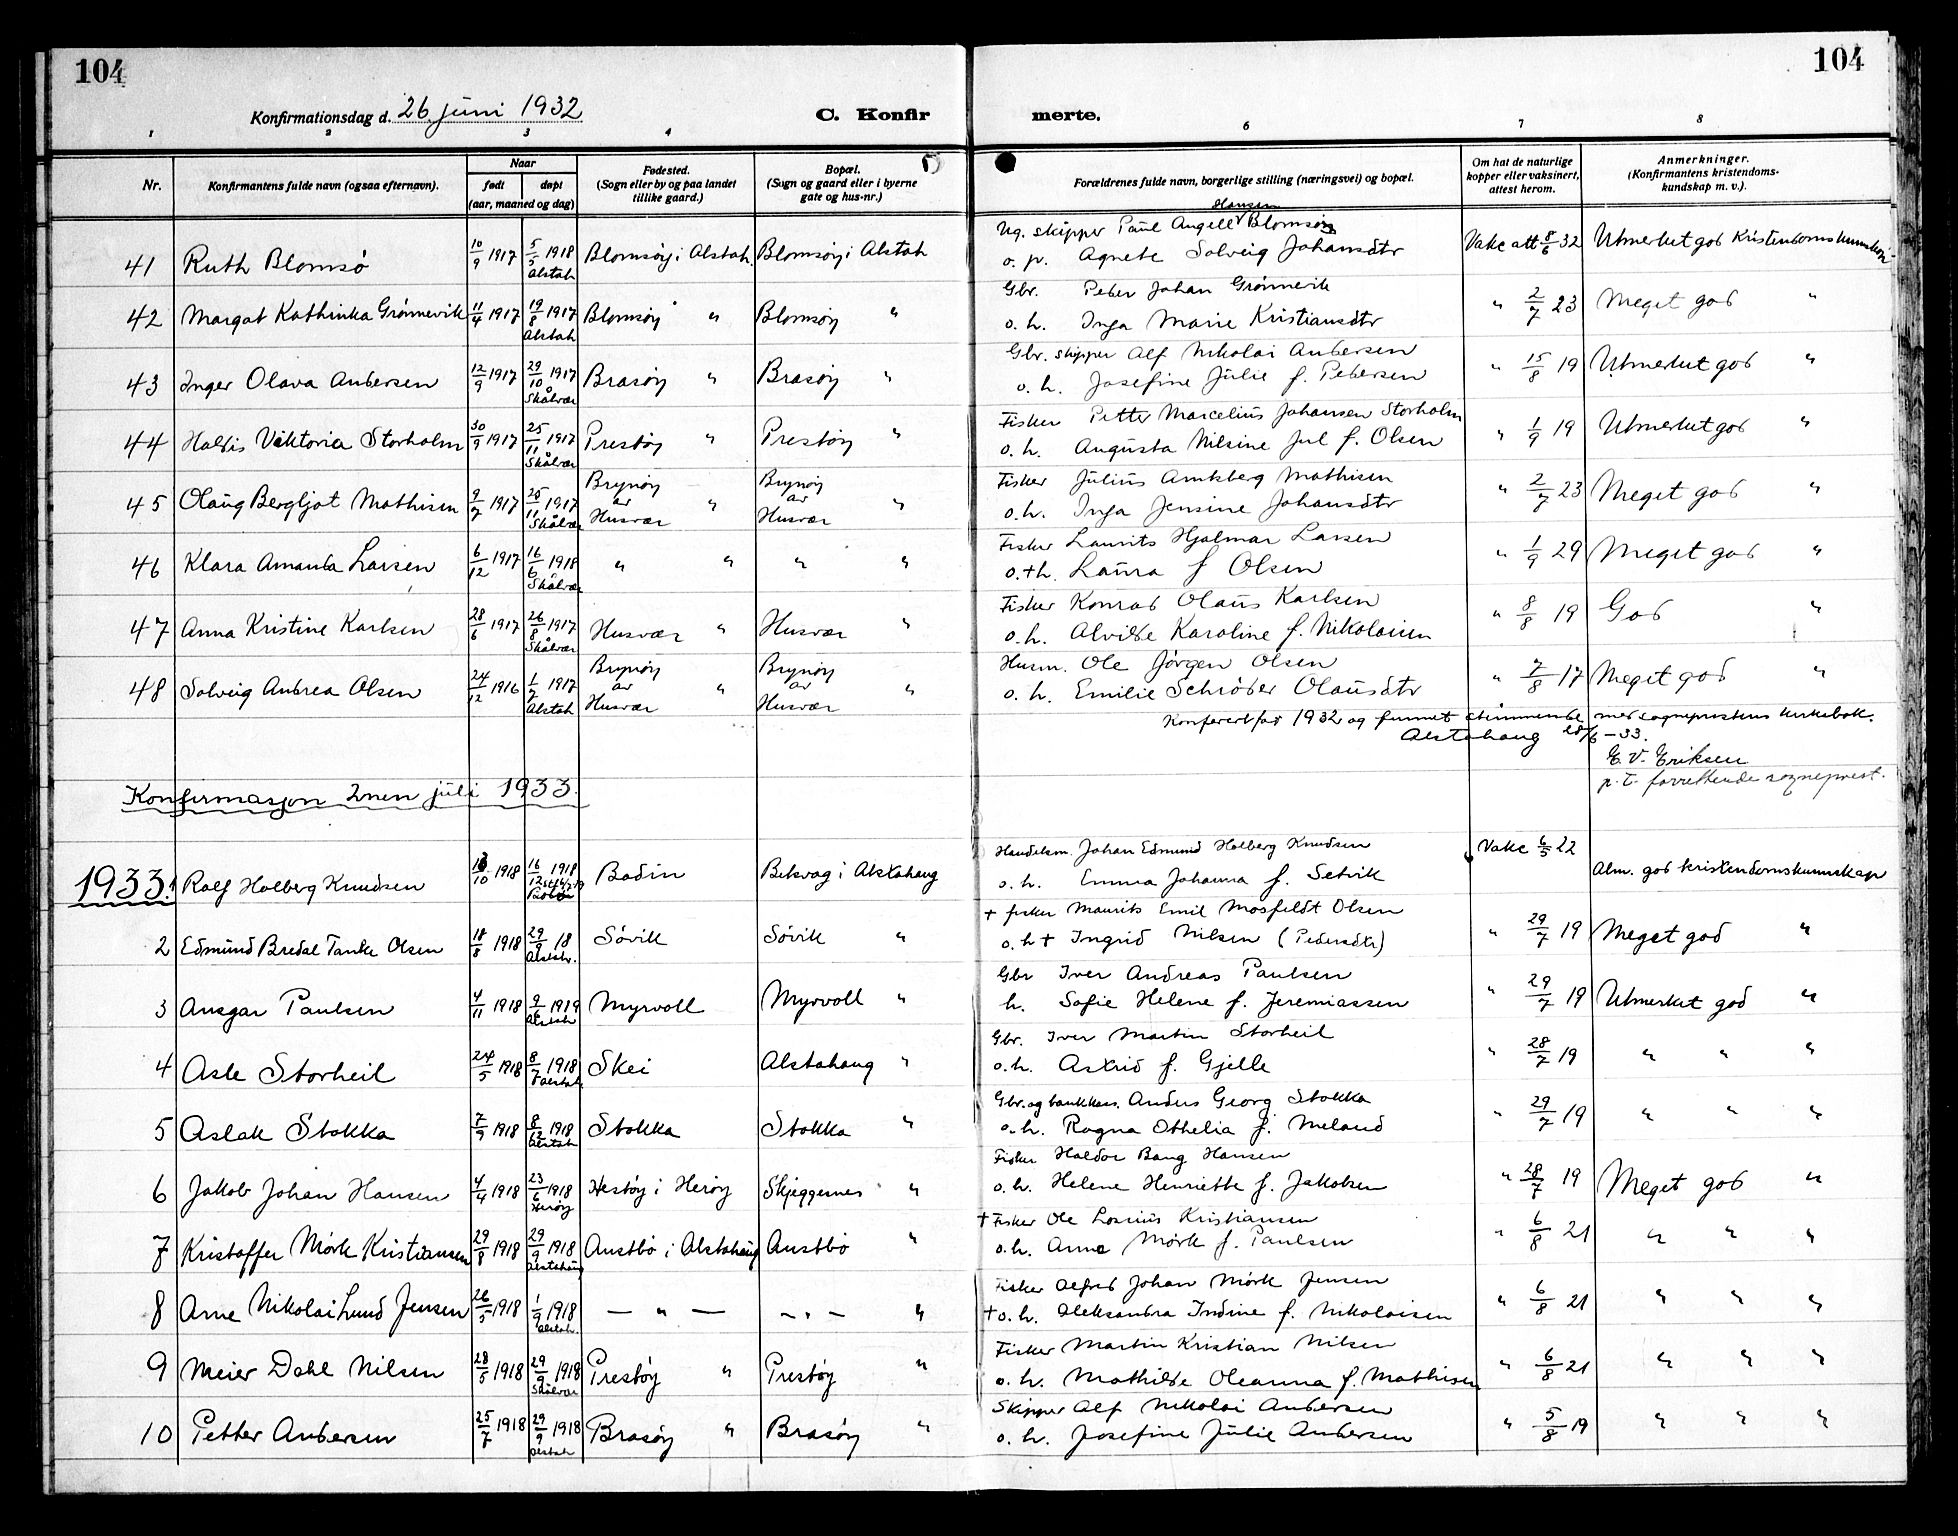 104
104
Konfirmationsdag d. 26 juni 1932
C. Konfir
merte.
1 2 3 4 6 7 8
Nr.
Konfirmantens fulde navn (ogsaa efternavn).
Naar
født
døpt
(aar, maaned og dag)
Fødested.
(Sogn eller by og paa landet
tillike gaard.)
Bopæl.
(Sogn og gaard eller i byerne
gate og hus-nr.)
Forældrenes fulde navn, borgerlige stilling (næringsvei) og bopæl.
Om hat de naturlige
kopper eller vaksinert,
attest herom.
Anmerkninger.
(Konfirmantens kristendoms-
kundskap m. v.).
41 Ruth Blomsø 10/9 1917 5/5 1918 Alstah. Blomsøy i Alstah. Blomsøy i Alstah
Ug. skipper Paul Angell Hansen Blomsøy
o. p. Agnete Solveig Johansdtr Vakc att 8/6 32 Utmerket god Kristendomskunnskap
42 Margot Kathinka Grønnevik 11/4 1917 19/8 1917 Alstah Blomsøy " Blomsøy "
Gbr. Peder Johan Grønnevik
o. h. Inga Marie Kristiansdtr " 2/7 23 Meget god "
43 Inger Olava Andersen 12/9 1917 29/10 1917 Skålvær Brasøy " Brasøy "
Gbr. skipper Alf Nikolai Andersen
o. h. Josefine Julie f. Pedersen " 15/8 19 Utmerket god "
44 Haldis Viktoria Storholm 30/9 1917 25/11 1917 Skålvær Prestøy " Prestøy "
Fisker Petter Marcelius Johansen Storholm
o. h. Augusta Nilsine Jul f. Olsen " 1/9 19 Utmerket god "
45 Olaug Bergljot Mathisen 9/7 1917 25/11 1917 Skålvær Brynøy av Husvær " Brynøy av Husvær "
Fisker Julius Amtsberg Mathisen
o. h. Inga Jensine Johansdtr " 2/7 23 Meget god "
46 Klara Amanda Larsen 6/12 1917 16/6 1918 Skålvær " " " "
Fisker Laurits Hjalmar Larsen
o. + h. Laura f Olsen " 1/9 29 Meget god "
47 Anna Kristine Karlsen 28/6 1917 26/8 1917 Skålvær Husvær " Husvær "
Fisker Konrad Olaus Karlsen
o. h. Alvilde Karoline f. Nikolaisen " 8/8 19 God "
48 Solveig Andrea Olsen 24/12 1916 1/7 1917 Alstah Brynøy av Husvær " Brynøy av Husvær "
Husm. Ole Jørgen Olsen
o. h. Emilie Schrøder Olausdtr " 7/8 17 Meget god "
Konferert for 1932 og funnet stemmende med sogneprestens kirkebok.
Alstahaug 28/6 - 33.
E. V. Eriksen
p. t. forrettende sogneprest.
Konfirmasjon 2nen juli 1933.
1933. 1 Rolf Holberg Knudsen 13/10 1918 16/12 1918 Bodin Belsvag i Alstahaug
Handelsm. Johan Edmund Holberg Knudsen
o. h. Emma Johanna f. Setvik Vakc 6/5 22 Alm. god kristendomskunnskap
2 Edmund Bredal Tanke Olsen 18/8 1918 29/9 18 Alstah. Søvik Søvik "
+ fisker Maurits Emil Mosfeldt Olsen
o. h + Ingrid Nilsen (Pedersdtr) " 29/7 19 Meget god "
3 Ansgar Paulsen 4/11 1918 9/6 1919 Alstah Myrvoll Myrvoll "
Gbr Iver Andreas Paulsen
h. Sofie Helene f. Jeremiassen " 29/7 19 Utmerket god "
4 Asle Storheil 24/5 1918 8/7 1918 Alstah Skei Alstahaug "
Gbr. Iver Martin Storheil
o. h. Astrid f. Gjelle " 28/7 19 " " "
5 Aslak Stokka 7/9 1918 8/12 1918 Alstah Stokka Stokka "
Gbr. og bankkass. Anders Georg Stokka
o. h. Ragna Othelia f. Meland " 29/7 19 " " "
6 Jakob Johan Hansen 4/4 1918 23/6 1918 Herøy Hestøy i Herøy Skjeggesnes "
Fisker Haldor Bang Hansen
o. h. Helene Henriette f. Jakobsen " 28/7 19 Meget god "
7 Kristoffer Mørk Kristiansen 29/8 1918 29/9 1918 Alstahaug Austbø i Alstahaug Austbø "
+ Fisker Ole Losrius Kristiansen
o. h. Anna Mørk f. Paulsen " 6/8 21 " " "
8 Arne Nikolai Lund Jensen 26/5 1918 1/9 1918 Alstah. — " — — " — "
Fisker Alfred Johan Mørk Jensen
+ o. h. Aleksandra Indine f. Nikolaisen " 6/8 21 " " "
9 Meier Dahl Nilsen 28/5 1918 29/9 1918 Skålvær Prestøy " Prestøy "
Fisker Martin Kristian Nilsen
o. h. Mathilde Oleanna f. Mathisen " 6/8 21 " " "
10 Petter Andersen 25/7 1918 29/9 1918 Alstah Brasøy " Brasøy "
Skipper Alf Nikolai Andersen
o. h. Josefine Julie Andersen " 5/8 19 " " "